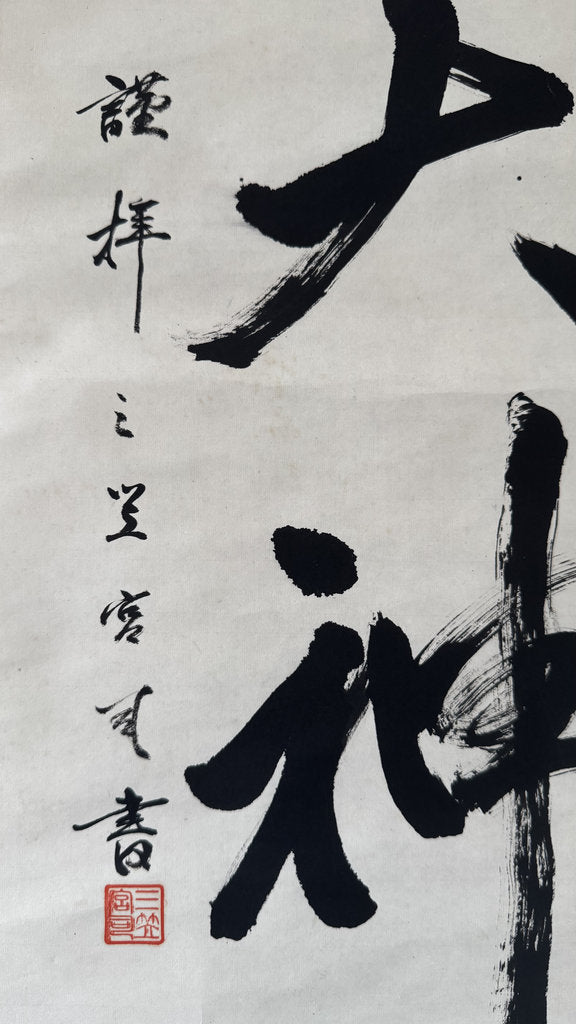 大神
謹拝 三笠宮 書
三笠
宮